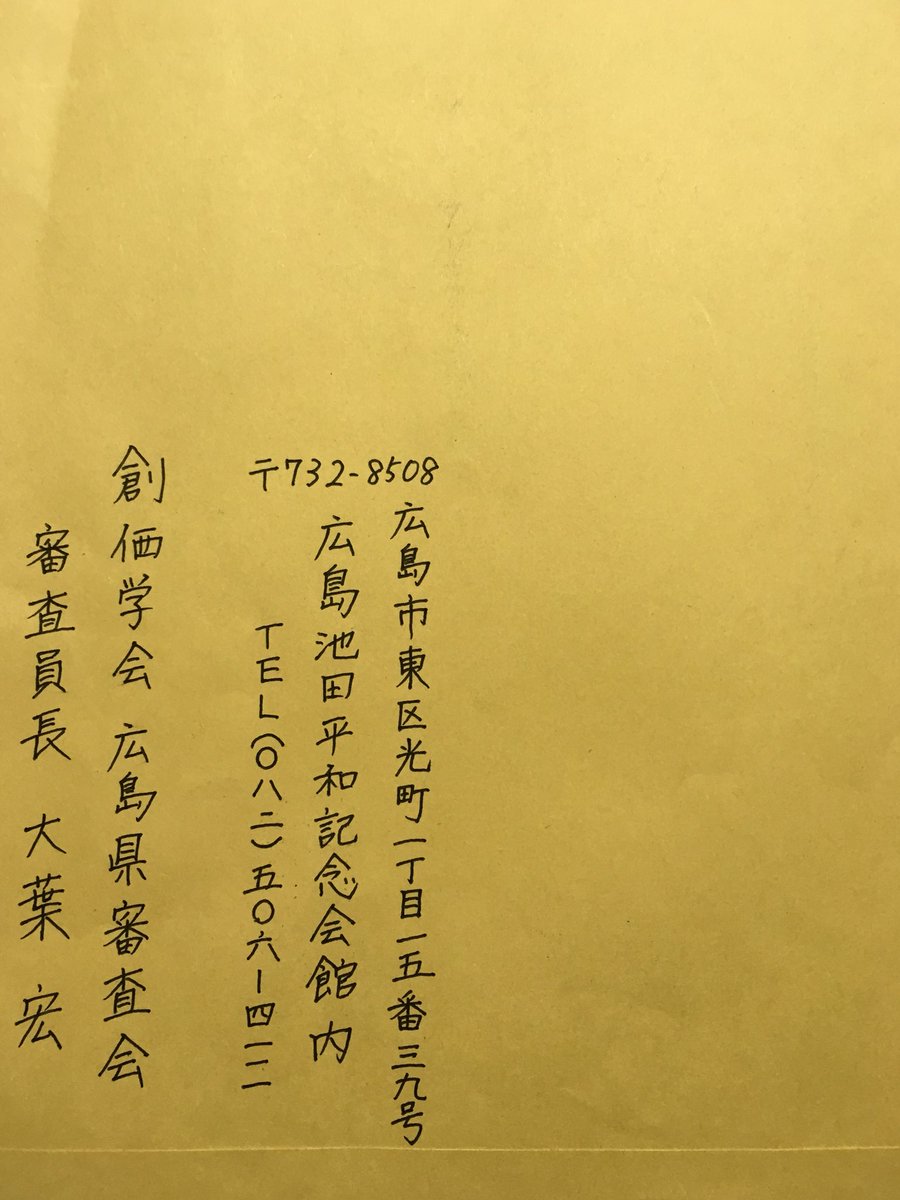 〒732-8508
広島市東区光町一丁目一五番三九号
広島池田平和記念会館内
TEL(〇八二)五〇六-四一二一
創価学会 広島県審査会
審査員長 大葉 宏